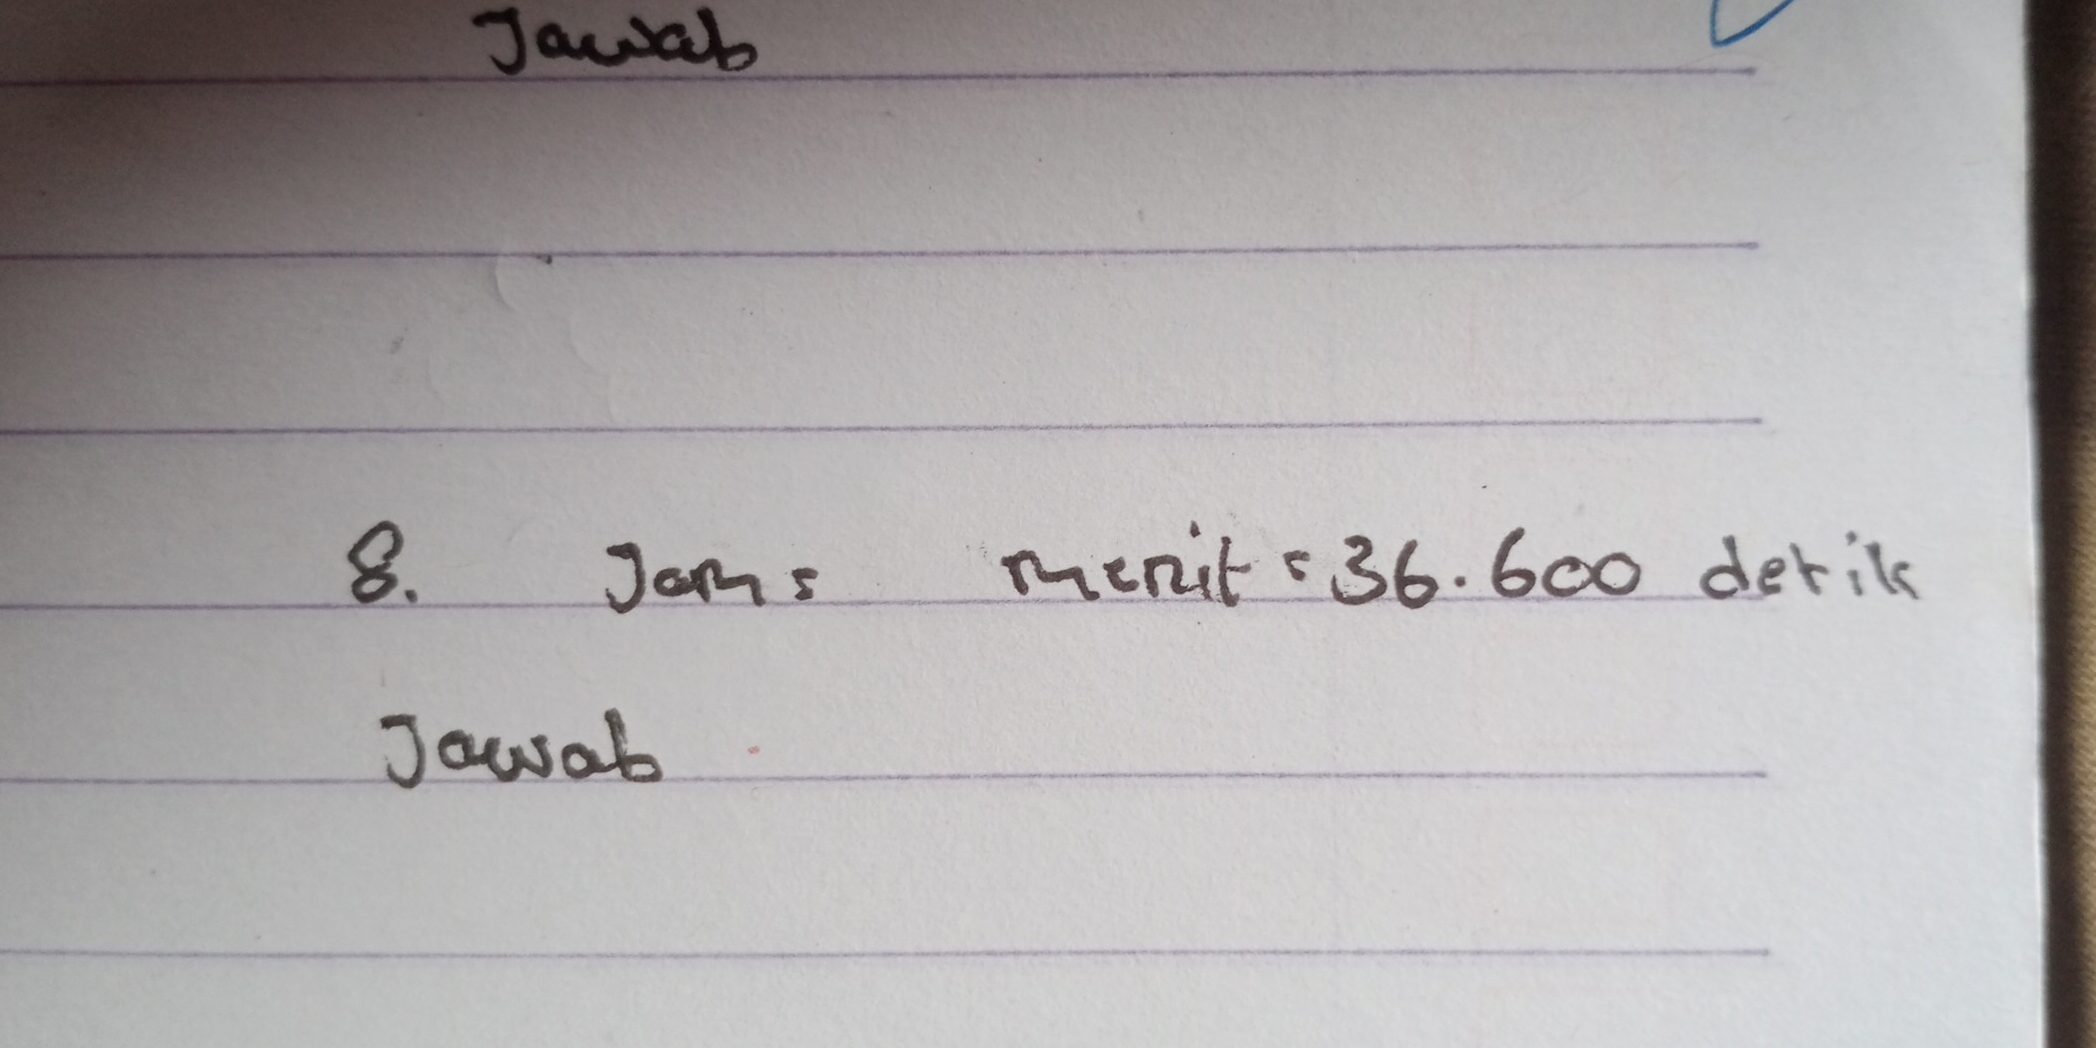 Jawab
8. Jam = menit = 36.600 detik
Jawab